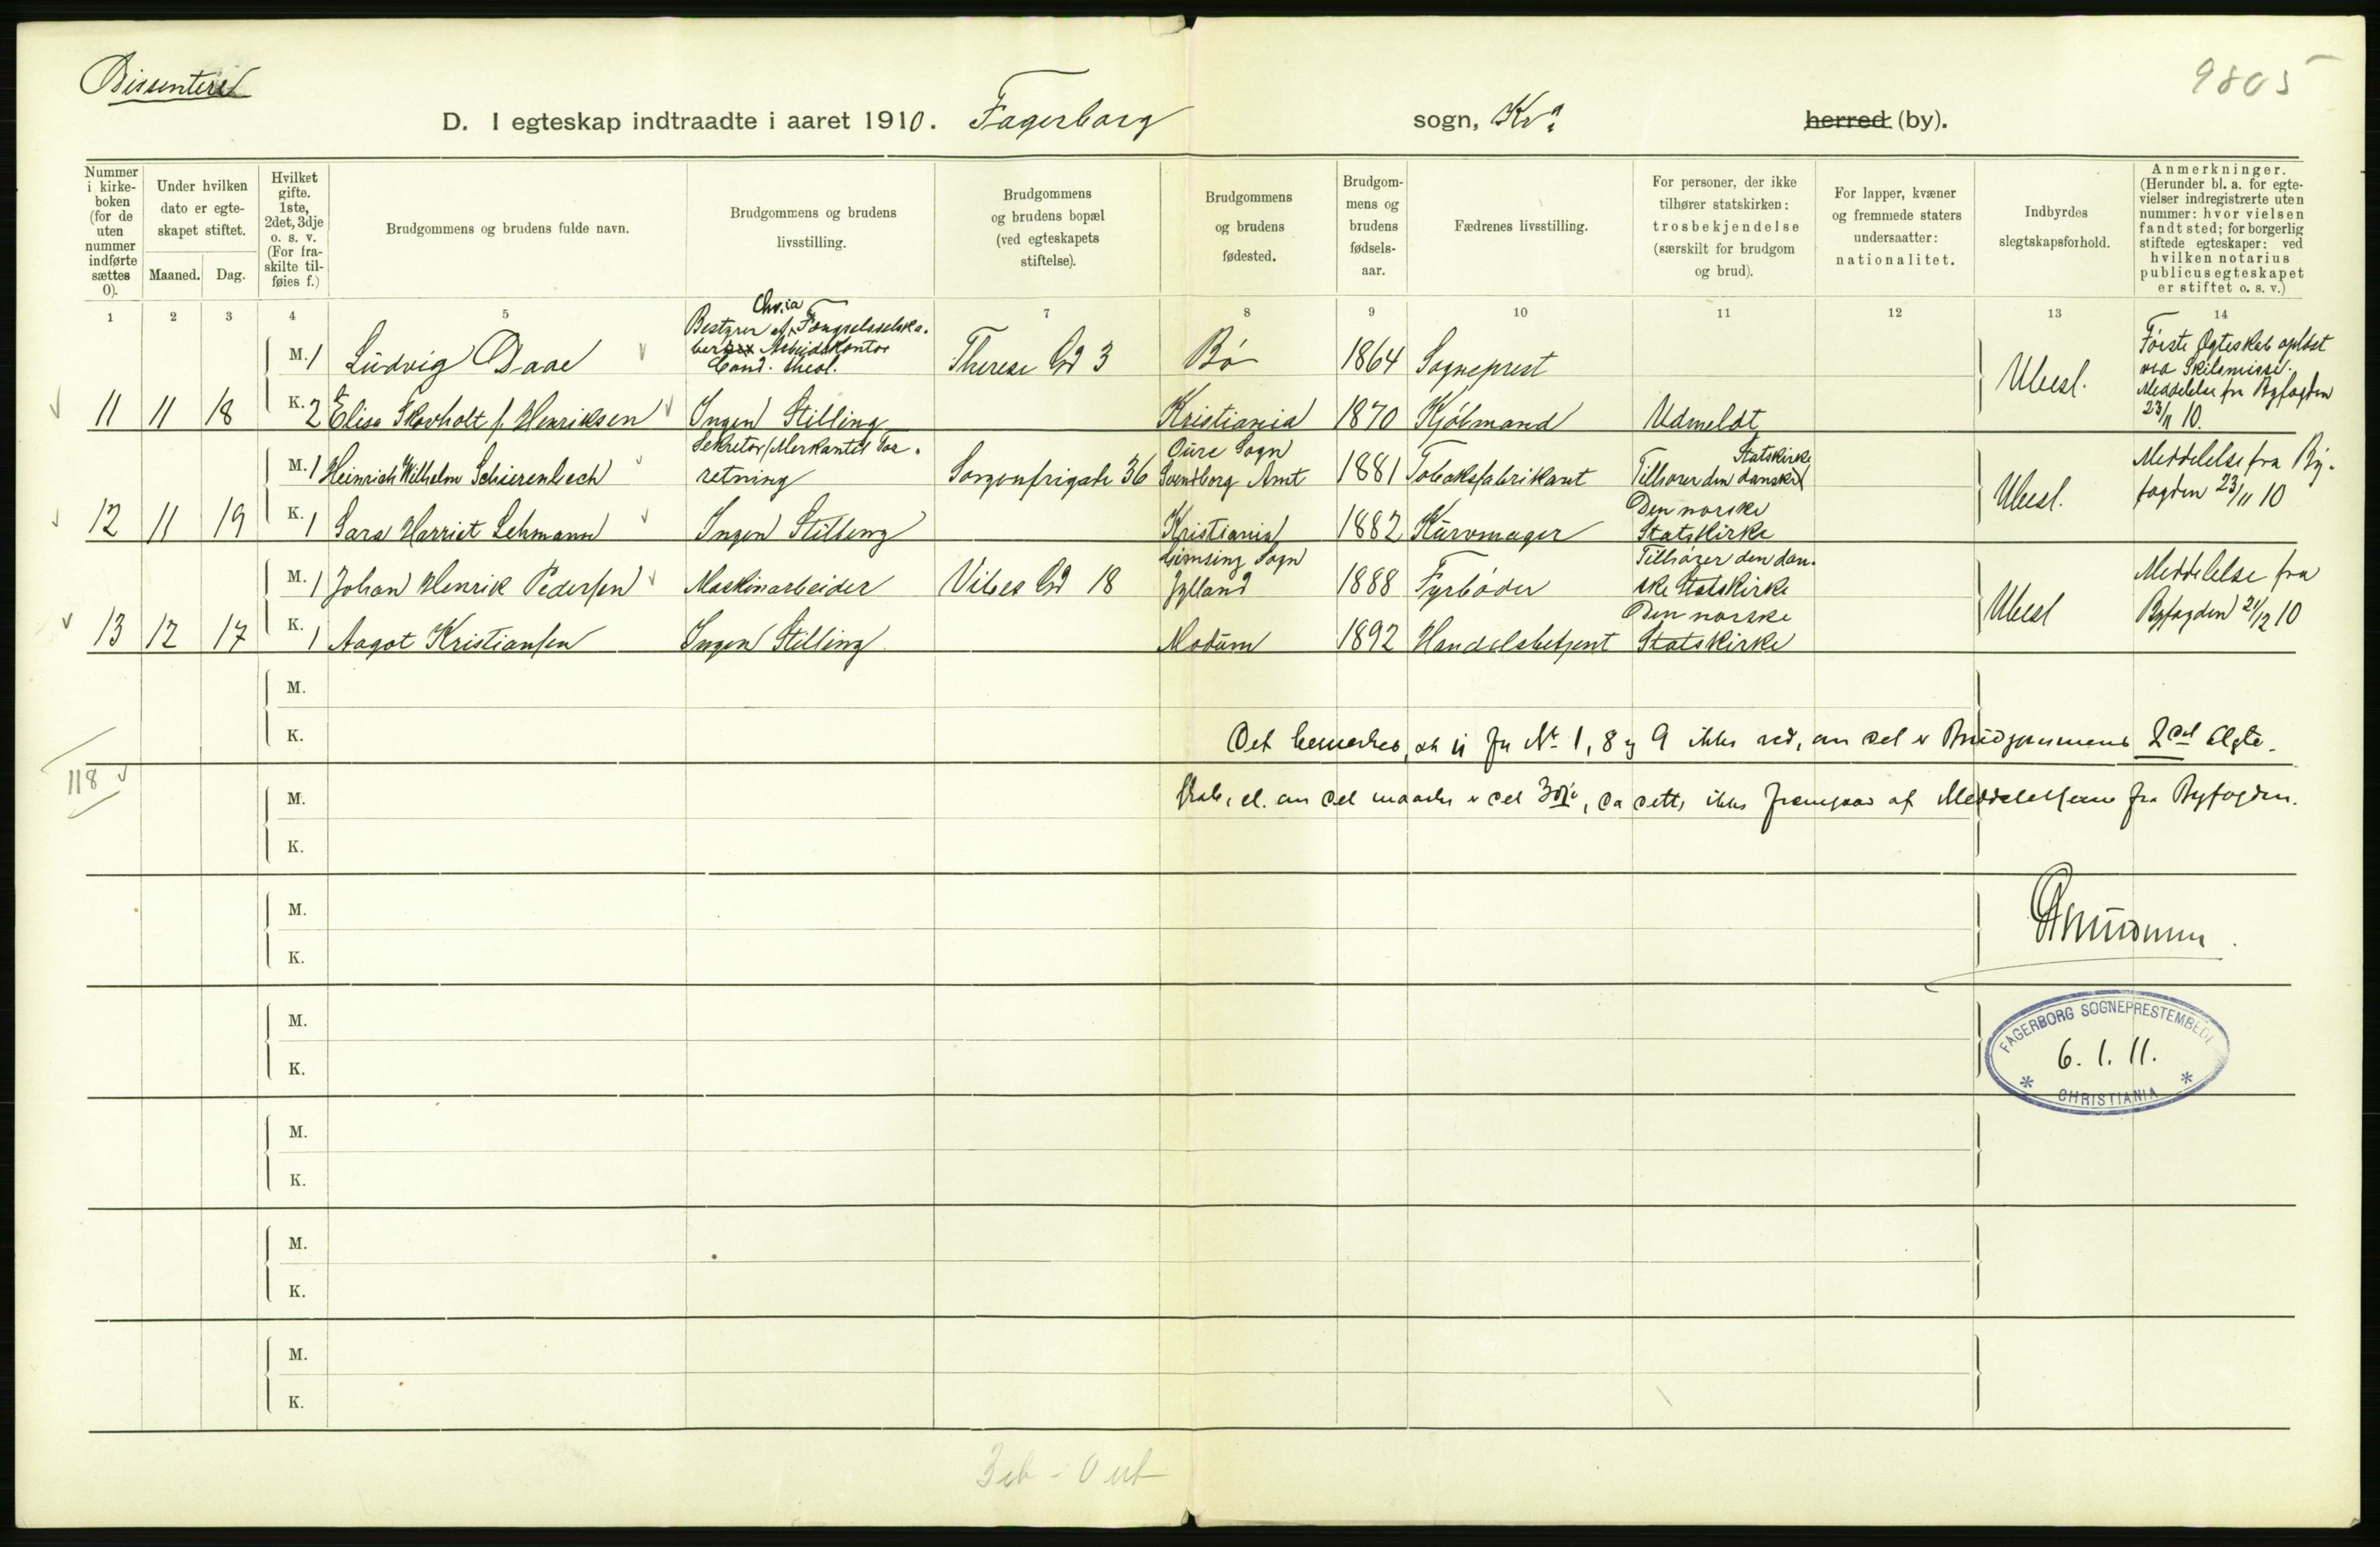 Dissentere
9805
D. I egteskap indtraadte i aaret 1910. Fagerborg sogn, Kra. herred (by).
Nummer i kirkeboken (for de uten nummer indførte sættes 0).
Under hvilken dato er egteskapet stiftet.
Maaned. Dag.
Hvilket gifte. 1ste, 2det, 3dje o. s. v. (For fraskilte tilføies f.)
Brudgommens og brudens fulde navn.
Brudgommens og brudens livsstilling.
Brudgommens og brudens bopæl (ved egteskapets stiftelse).
Brudgommens og brudens fødested.
Brudgommens og brudens fødselsaar.
Fædrenes livsstilling.
For personer, der ikke tilhører statskirken: trosbekjendelse (særskilt for brudgom og brud).
For lapper, kvæner og fremmede staters undersaatter: nationalitet.
Indbyrdes slegtskapsforhold.
Anmerkninger. (Herunder bl. a. for egtevielser indregistrerte uten nummer: hvor vielsen fandt sted; for borgerlig stiftede egteskaper: ved hvilken notarius publicus egteskapet er stiftet o. s. v.)
1 2 3 4 5 6 7 8 9 10 11 12 13 14
M. 1 Ludvig Daae Bestyrer af Chr.ia Fængselsselskabers Arbeidskontor Cand. theol. Therese Gd 3 Bø 1864 Sogneprest
11 11 18 K. 2 Elisa Skovholt f. Henriksen Ingen Stilling Kristiania 1870 Kjøbmand Udmeldt
Ubesl. Første Ægteskab opløst ved Skilsmisse. Meddelelse fra Byfogden 23/11 10.
M. 1 Heinrich Wilhelm Schierenbech Sekretær/Merkantil Forretning Sorgenfrigade 36 Oure Sogn Svendborg Amt 1881 Tobaksfabrikant Tilhører den danske Statskirke
12 11 19 K. 1 Sara Harriet Lehmann Ingen Stilling Kristiania 1882 Kurvmager Den norske Statskirke
Ubesl. Meddelelse fra Byfogden 23/11 10
M. 1 Johan Henrik Pedersen Maskinarbeider Vibes Gd 18 Sogn Jylland 1888 Fyrbøder Tilhører den danske Statskirke
13 12 17 K. 1 Aagot Kristiansen Ingen Stilling Modum 1892 Handelsbetjent Den norske Statskirke
Ubesl Meddelelse fra Byfogden 21/12 10
M.
K.
Det bemerkes, at vi for No 1, 8 og 9 ikke ved, om det er Brudgommens 2det Ægte-
118
M.
skab, el. om det maaske er det 3dje, da dette ikke fremgaar af Meddelelserne fra Byfogden.
K.
M.
K.
M.
K.
FAGERBORG SOGNEPRESTEMBEDE
6. 1. 11.
* CHRISTIANIA *
M.
K.
M.
K.
M.
K.